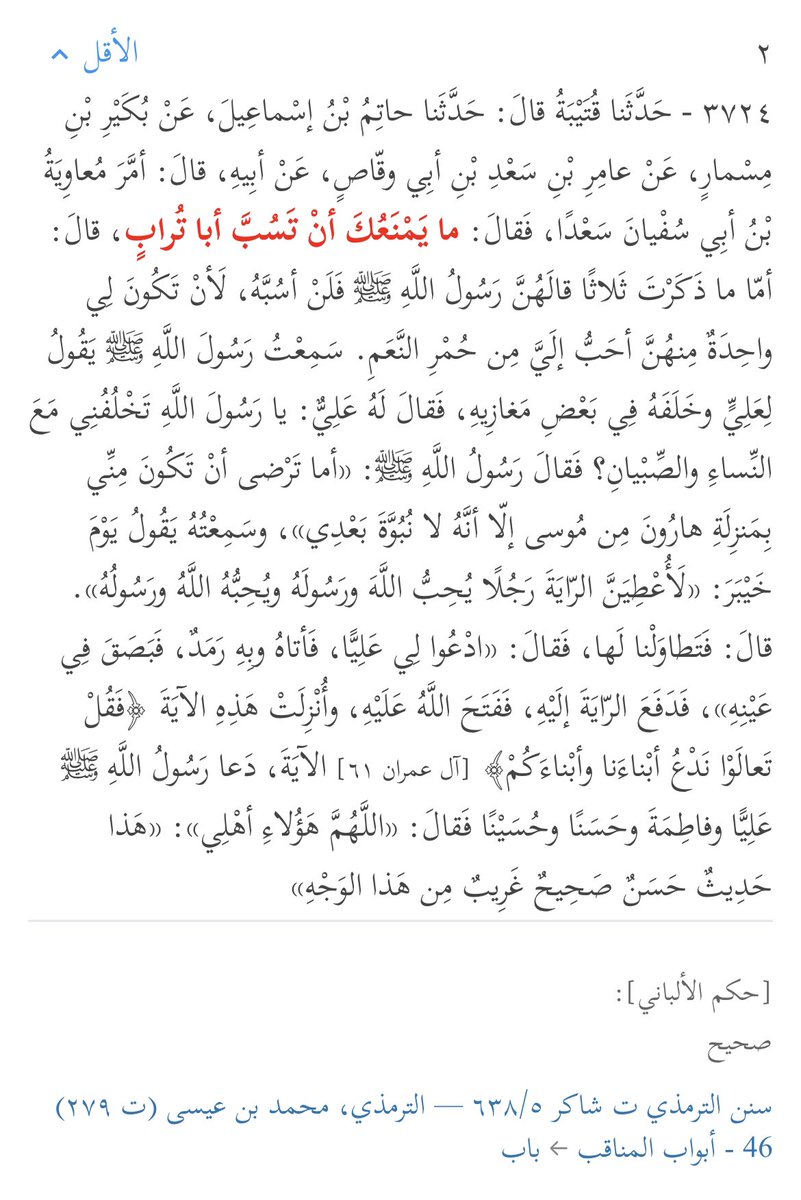 ٢
الأقل
٣٧٢٤ - حَدَّثَنا قُتَيْبَةُ قالَ: حَدَّثَنا حاتِمُ بْنُ إسْماعِيلَ، عَنْ بُكَيْرِ بْنِ
مِسْمارٍ، عَنْ عامِرِ بْنِ سَعْدِ بْنِ أبِي وقّاصٍ، عَنْ أبِيهِ، قالَ: أمَّرَ مُعاوِيَةُ
بْنُ أبِي سُفْيانَ سَعْدًا، فَقالَ: ما يَمْنَعُكَ أنْ تَسُبَّ أبا تُرابٍ، قالَ:
أمّا ما ذَكَرْتَ ثَلاثًا قالَهُنَّ رَسُولُ اللَّهِ ﷺ فَلَنْ أسُبَّهُ، لَأنْ تَكُونَ لِي
واحِدَةٌ مِنهُنَّ أحَبُّ إلَيَّ مِن حُمْرِ النَّعَمِ. سَمِعْتُ رَسُولَ اللَّهِ ﷺ يَقُولُ
لِعَلِيٍّ وخَلَفَهُ فِي بَعْضِ مَغازِيهِ، فَقالَ لَهُ عَلِيٌّ: يا رَسُولَ اللَّهِ تَخْلُفُنِي مَعَ
النِّساءِ والصِّبْيانِ؟ فَقالَ رَسُولُ اللَّهِ ﷺ: «أما تَرْضى أنْ تَكُونَ مِنِّي
بِمَنزِلَةِ هارُونَ مِن مُوسى إلّا أنَّهُ لا نُبُوَّةَ بَعْدِي»، وسَمِعْتُهُ يَقُولُ يَوْمَ
خَيْبَرَ: «لَأُعْطِيَنَّ الرّايَةَ رَجُلًا يُحِبُّ اللَّهَ ورَسُولَهُ ويُحِبُّهُ اللَّهُ ورَسُولُهُ».
قالَ: فَتَطاوَلْنا لَها، فَقالَ: «ادْعُوا لِي عَلِيًّا، فَأتاهُ وبِهِ رَمَدٌ، فَبَصَقَ فِي
عَيْنِهِ»، فَدَفَعَ الرّايَةَ إلَيْهِ، فَفَتَحَ اللَّهُ عَلَيْهِ، وأُنْزِلَتْ هَذِهِ الآيَةَ ﴿فَقُلْ
تَعالَوْا نَدْعُ أبْناءَنا وأبْناءَكُمْ﴾ [آل عمران ٦١] الآيَةَ، دَعا رَسُولُ اللَّهِ ﷺ
عَلِيًّا وفاطِمَةَ وحَسَنًا وحُسَيْنًا فَقالَ: «اللَّهُمَّ هَؤُلاءِ أهْلِي»: «هَذا
حَدِيثٌ حَسَنٌ صَحِيحٌ غَرِيبٌ مِن هَذا الوَجْهِ»
[حكم الألباني]:
صحيح
سنن الترمذي ت شاكر ٦٣٨/٥ — الترمذي، محمد بن عيسى (ت ٢٧٩)
46 - أبواب المناقب ← باب